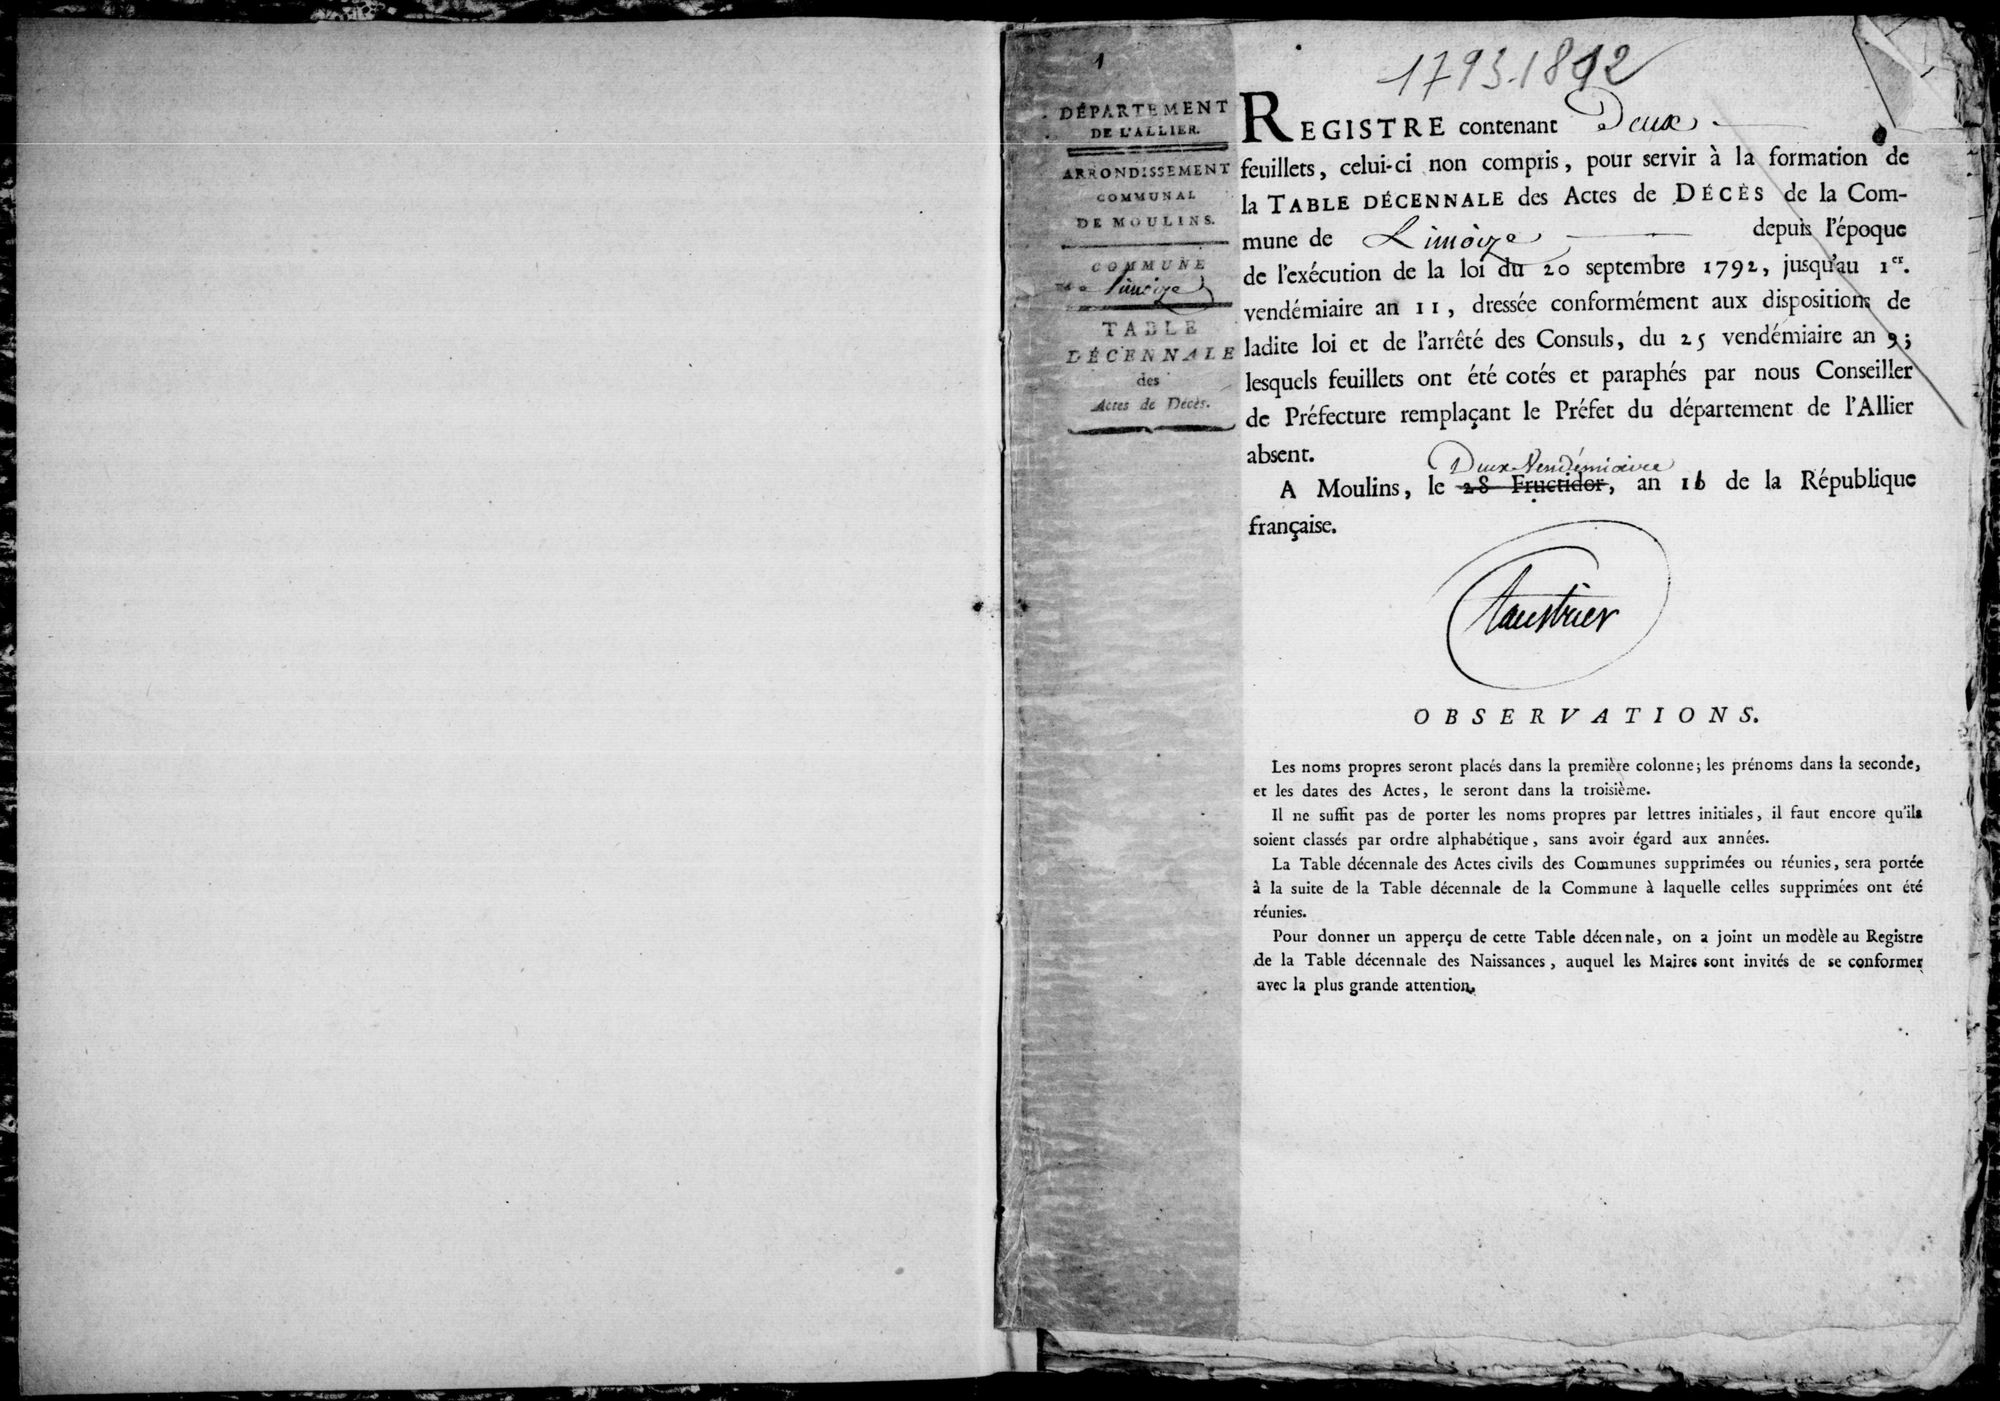 1
DÉPARTEMENT
DE L'ALLIER.
ARRONDISSEMENT
COMMUNAL
DE MOULINS.
COMMUNE
de Limoize
TABLE
DÉCENNALE
des
Actes de Décès.
1793-1892
REGISTRE contenant Deux
feuillets, celui-ci non compris, pour servir à la formation de
la TABLE DÉCENNALE des Actes de DÉCÈS de la Com-
mune de Limoize depuis l'époque
de l'exécution de la loi du 20 septembre 1792, jusqu'au 1er.
vendémiaire an 11, dressée conformément aux dispositions de
ladite loi et de l'arrêté des Consuls, du 25 vendémiaire an 9;
lesquels feuillets ont été cotés et paraphés par nous Conseiller
de Préfecture remplaçant le Préfet du département de l'Allier
absent.
Deux Vendémiaire
A Moulins, le 28 Fructidor, an 1b de la République
française.
OBSERVATIONS.
Les noms propres seront placés dans la première colonne; les prénoms dans la seconde,
et les dates des Actes, le seront dans la troisième.
Il ne suffit pas de porter les noms propres par lettres initiales, il faut encore qu'ils
soient classés par ordre alphabétique, sans avoir égard aux années.
La Table décennale des Actes civils des Communes supprimées ou réunies, sera portée
à la suite de la Table décennale de la Commune à laquelle celles supprimées ont été
réunies.
Pour donner un apperçu de cette Table décennale, on a joint un modèle au Registre
de la Table décennale des Naissances, auquel les Maires sont invités de se conformer
avec la plus grande attention.